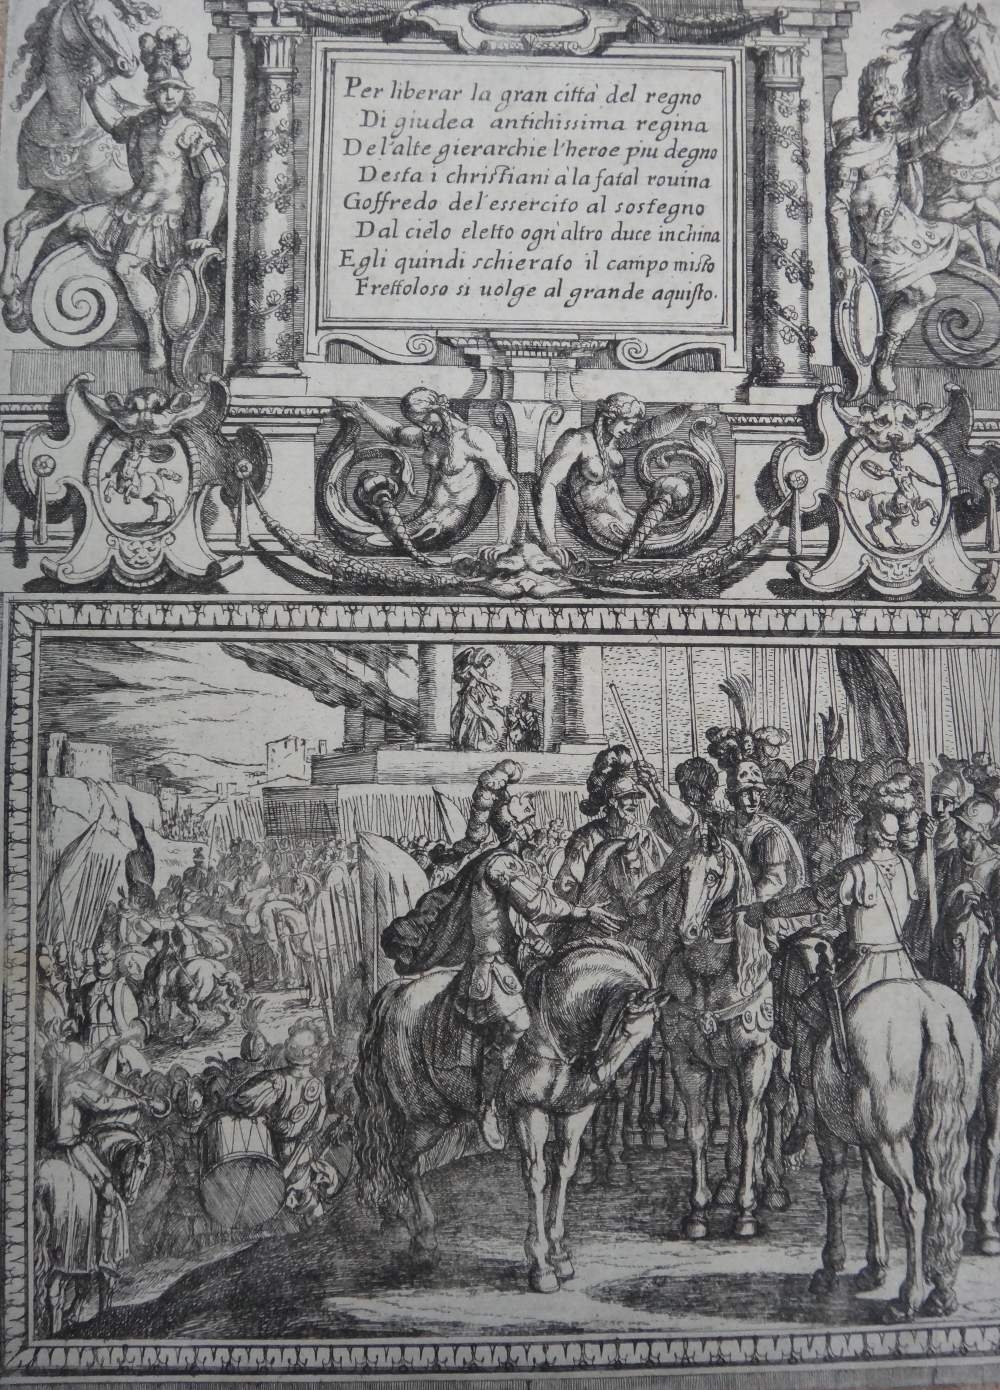 Per liberar la gran città del regno
Di giudea antichissima regina
Del'alte gierarchie l'heroe piu degno
Desta i christiani à la fatal rouina
Goffredo del'essercito al sostegno
Dal cielo eletto ogn'altro duce inchina
Egli quindi schierato il campo misto
Frettoloso si uolge al grande aquisto.